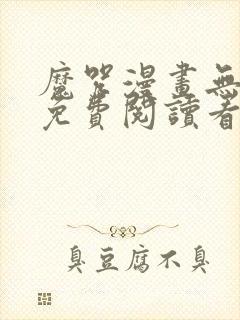 魔咒漫畫無
免費閱讀看
臭豆腐不臭